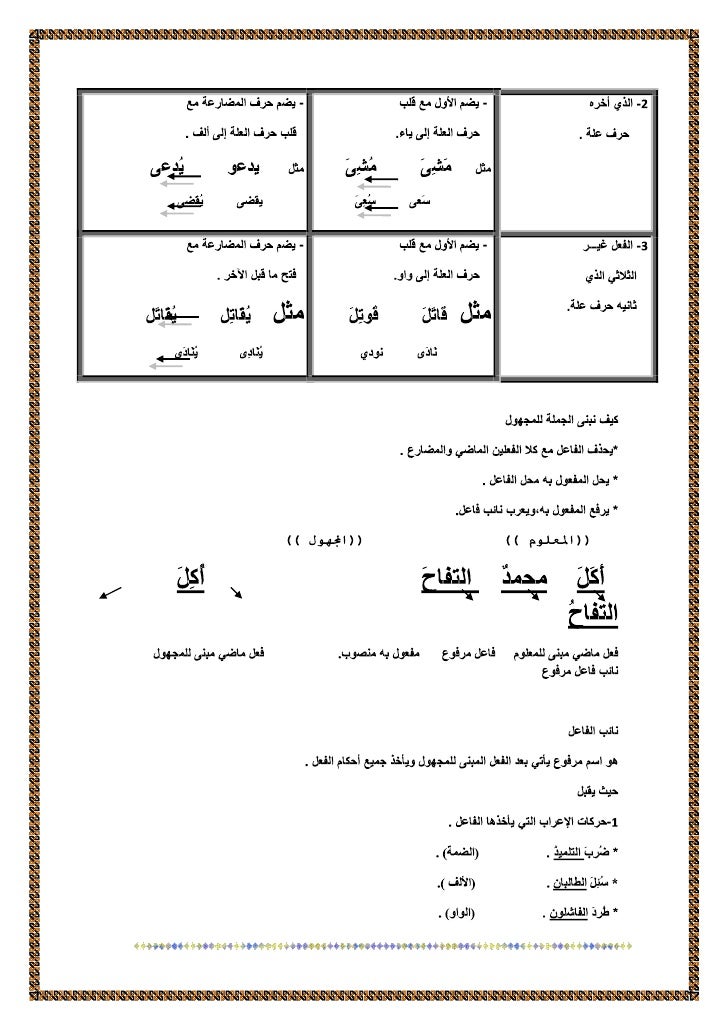 2- الذي أخره
حرف علة .
- يضم الأول مع قلب
حرف العلة إلى ياء.
مثل مَشىَ مُشِىَ
سَعى سُعِىَ
- يضم حرف المضارعة مع
قلب حرف العلة إلى ألف .
مثل يدعو يُدعى
يقضى يُقضى
3- الفعل غيـــر
الثلاثي الذي
ثانيه حرف علة.
- يضم الأول مع قلب
حرف العلة إلى واو.
مثل قاتَلَ قُوتِلَ
نادَى نودي
- يضم حرف المضارعة مع
فتح ما قبل الآخر .
مثل يُقاتِل يُقاتَل
يُنادِى يُنادَى
كيف نبنى الجملة للمجهول
*يحذف الفاعل مع كلا الفعلين الماضي والمضارع .
* يحل المفعول به محل الفاعل .
* يرفع المفعول به،ويعرب نائب فاعل.
((المعلوم )) ((المجهول ))
أكَلَ محمدٌ التفاحَ أُكِلَ
التفاحُ
فعل ماضي مبنى للمعلوم فاعل مرفوع مفعول به منصوب. فعل ماضي مبنى للمجهول
نائب فاعل مرفوع
نائب الفاعل
هو اسم مرفوع يأتي بعد الفعل المبنى للمجهول ويأخذ جميع أحكام الفعل .
حيث يقبل
1-حركات الإعراب التي يأخذها الفاعل .
* ضُربَ التلميذُ . (الضمة) .
* سُئِلَ الطالبان . (الألف ).
* طُردَ الفاشلون . (الواو) .